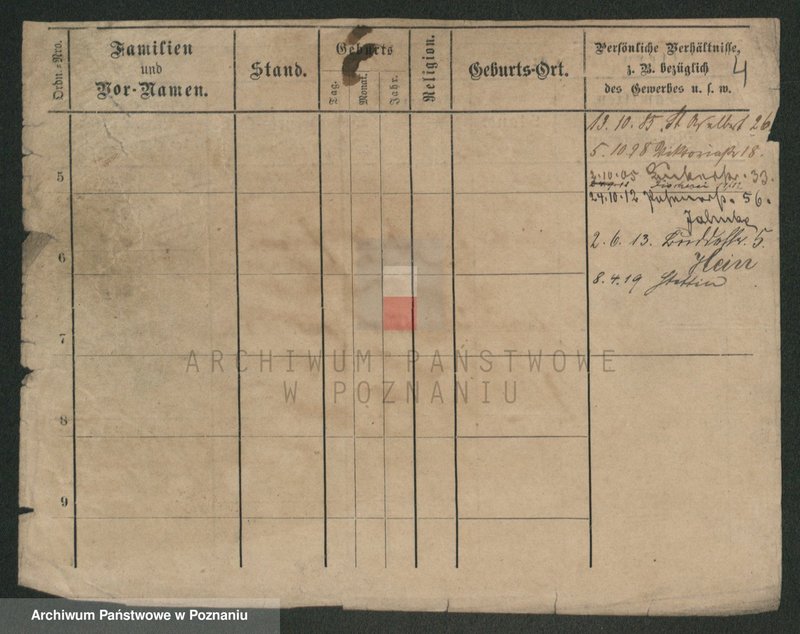 Ordn.=Nro.
Familien
und
Vor-Namen.
Stand.
Geburts
Tag.
Monat.
Jahr.
Religion.
Geburts-Ort.
Persönliche Verhältnisse,
z. B. bezüglich
des Gewerbes u. s. w.
4
13. 10. 85. St Adalbert 26
5. 10. 98 Viktoriastr 18.
5
2.10.05 33.
24.10.12 56.
2. 6. 13. 5.
6
8. 4. 19 Stettin
7
ARCHIWUM PAŃSTWOWE
W POZNANIU
8
9
Archiwum Państwowe w Poznaniu